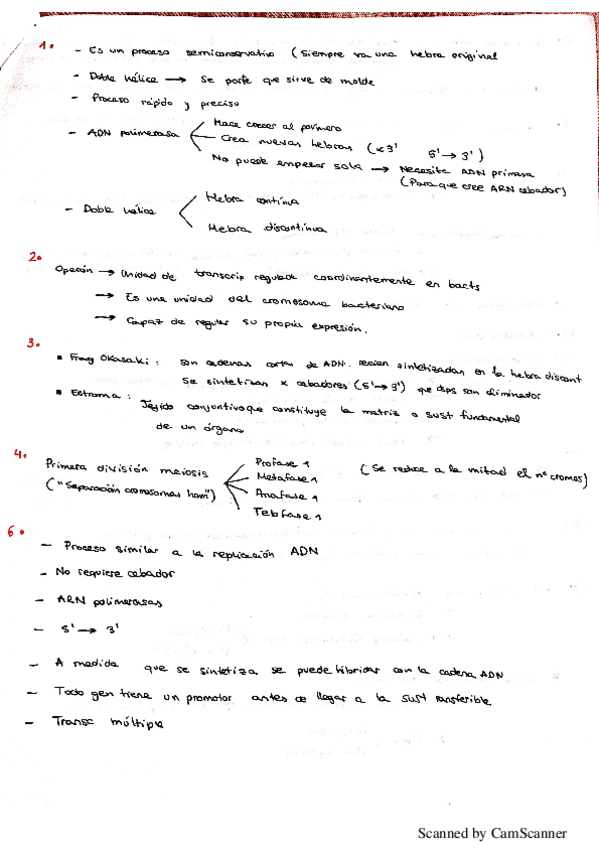 1.
- Es un proceso semiconservativo (siempre va una hebra original
- Doble hélice → Se parte que sirve de molde
- Proceso rápido y preciso
- ADN polimerasa
Hace crecer al polímero
Crea nuevas hebras (x 3' 5' → 3')
No puede empezar sola → Necesita ADN primasa
(Para que cree ARN cebador)
- Doble hélice
Hebra contínua
Hebra discontinua
2.
Operón → Unidad de transcrip regulada coordinantemente en bacts
→ Es una unidad del cromosoma bacteriano
→ Capaz de regular su propia expresión.
3.
• Frag Okasaki: son cadenas cortas de ADN recien sintetizadas en la hebra discont
Se sintetizan x cebadores (5' → 3') que dsps son eliminador
• Estroma: Tejido conjuntivo que constituye la matriz o sust fundamental
de un órgano
4.
Primera división meiosis
("Separación cromosomas hom")
Profase 1
Metafase 1
Anafase 1
Telofase 1
(Se reduce a la mitad el nº cromos)
6.
- Proceso similar a la replicación ADN
- No requiere cebador
- ARN polimerasas
- 5' → 3'
- A medida que se sintetiza se puede hibridar con la cadena ADN
- Todo gen tiene un promotor antes de llegar a la sust
- Transc múltiple
Scanned by CamScanner